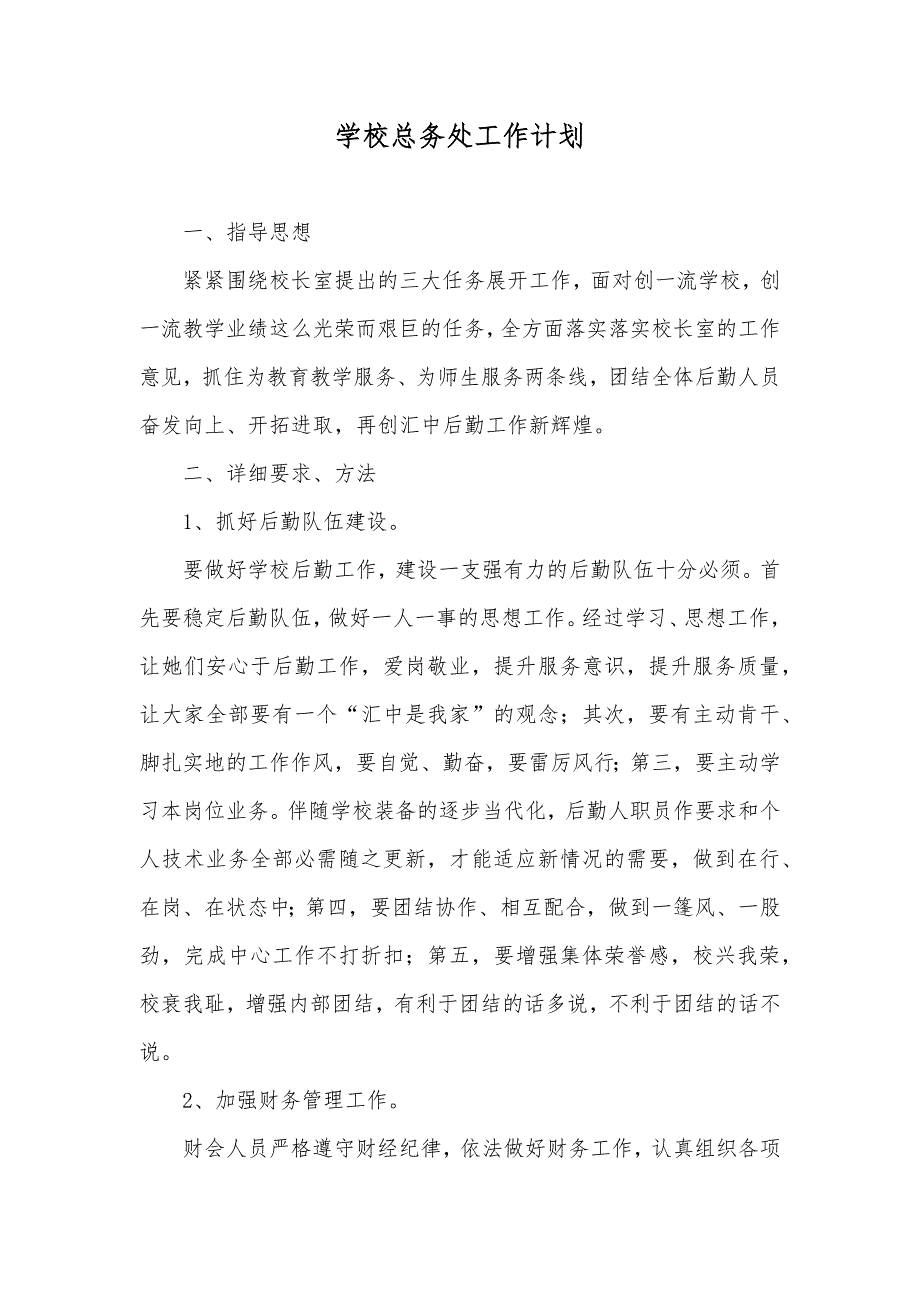 学校总务处工作计划
一、指导思想
紧紧围绕校长室提出的三大任务展开工作，面对创一流学校，创
一流教学业绩这么光荣而艰巨的任务，全方面落实落实校长室的工作
意见，抓住为教育教学服务、为师生服务两条线，团结全体后勤人员
奋发向上、开拓进取，再创汇中后勤工作新辉煌。
二、详细要求、方法
1、抓好后勤队伍建设。
要做好学校后勤工作，建设一支强有力的后勤队伍十分必须。首
先要稳定后勤队伍，做好一人一事的思想工作。经过学习、思想工作，
让她们安心于后勤工作，爱岗敬业，提升服务意识，提升服务质量，
让大家全部要有一个“汇中是我家”的观念；其次，要有主动肯干、
脚扎实地的工作作风，要自觉、勤奋，要雷厉风行；第三，要主动学
习本岗位业务。伴随学校装备的逐步当代化，后勤人职员作要求和个
人技术业务全部必需随之更新，才能适应新情况的需要，做到在行、
在岗、在状态中；第四，要团结协作、相互配合，做到一篷风、一股
劲，完成中心工作不打折扣；第五，要增强集体荣誉感，校兴我荣，
校衰我耻，增强内部团结，有利于团结的话多说，不利于团结的话不
说。
2、加强财务管理工作。
财会人员严格遵守财经纪律，依法做好财务工作，认真组织各项